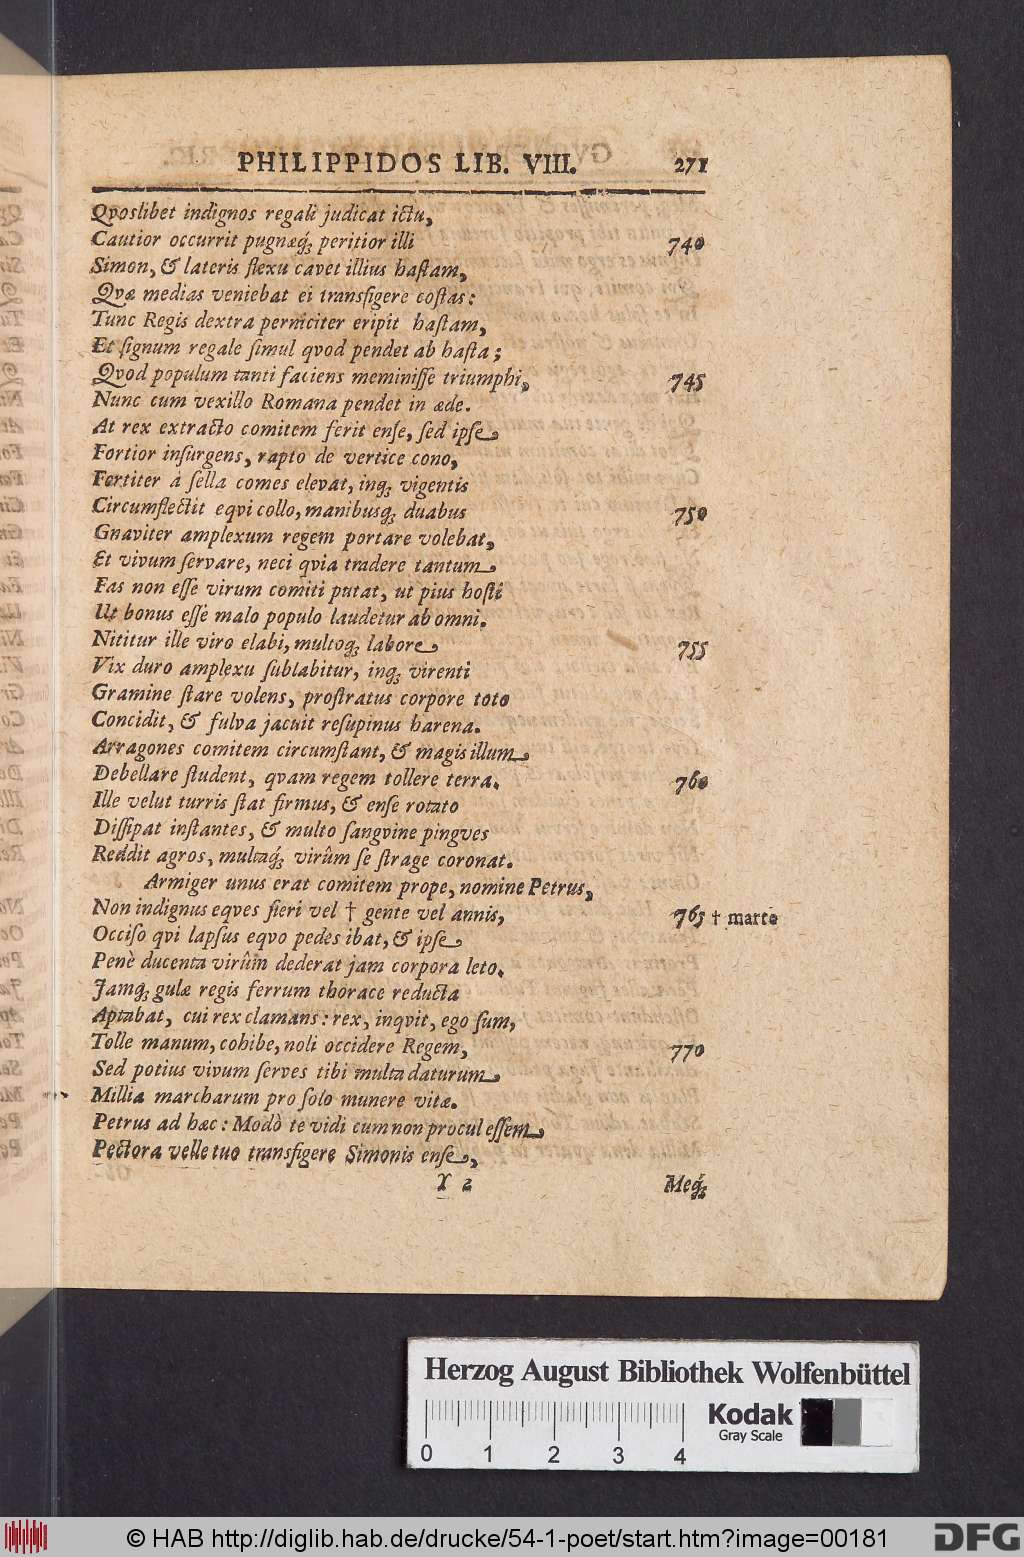 PHILIPPIDOS LIB. VIII. 271
Qvoslibet indignos regali judicat ictu,
Cautior occurrit pugnæq́; peritior illi 740
Simon, & lateris flexu cavet illius hastam,
Qvæ medias veniebat ei transfigere costas:
Tunc Regis dextra perniciter eripit hastam,
Et signum regale simul qvod pendet ab hasta;
Qvod populum tanti faciens meminisse triumphi, 745
Nunc cum vexillo Romana pendet in æde.
At rex extracto comitem ferit ense, sed ipse
Fortior insurgens, rapto de vertice cono,
Fortiter à sella comes elevat, inq; vigentis
Circumflectit eqvi collo, manibusq; duabus 750
Gnaviter amplexum regem portare volebat,
Et vivum servare, neci qvia tradere tantum
Fas non esse virum comiti putat, ut pius hosti
Ut bonus esse malo populo laudetur ab omni.
Nititur ille viro elabi, multoq; labore 755
Vix duro amplexu sublabitur, inq; virenti
Gramine stare volens, prostratus corpore toto
Concidit, & fulva jacuit resupinus harena.
Arragones comitem circumstant, & magis illum
Debellare student, qvam regem tollere terra. 760
Ille velut turris stat firmus, & ense rotato
Dissipat instantes, & multo sangvine pingves
Reddit agros, multaq́; virûm se strage coronat.
Armiger unus erat comitem prope, nomine Petrus,
Non indignus eqves fieri vel † gente vel annis, 765 † marte
Occiso qvi lapsus eqvo pedes ibat, & ipse
Penè ducenta virûm dederat jam corpora leto.
Jamq́; gulæ regis ferrum thorace reducta
Aptabat, cui rex clamans: rex, inqvit, ego sum,
Tolle manum, cohibe, noli occidere Regem, 770
Sed potius vivum serves tibi multa daturum
Millia marcharum pro solo munere vitæ.
Petrus ad hæc: Modò te vidi cum non procul essem
Pectora velle tuo transfigere Simonis ense,
Y 2 Meq́;
Herzog August Bibliothek Wolfenbüttel
Kodak
Gray Scale
0 1 2 3 4
© HAB http://diglib.hab.de/drucke/54-1-poet/start.htm?image=00181
DFG